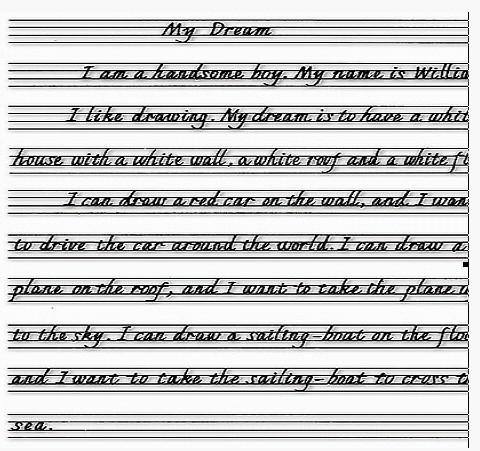 My Dream
I am a handsome boy. My name is
I like drawing. My dream is to have a
house with a white wall, a white roof and a white
I can draw a red car on the wall, and I
to drive the car around the world. I can draw a
plane on the roof, and I want to take the plane
to the sky. I can draw a sailing-boat on the
and I want to take the sailing-boat to cross
sea.